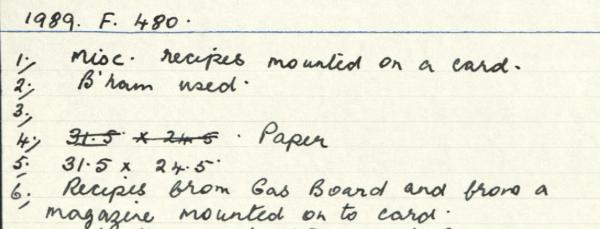 1989. F. 480.
1, Misc. recipes mounted on a card.
2, B'ham used.
3,
4, 31.5 x 24.5 . Paper
5. 31.5 x 24.5
6, Recipes from Gas Board and from a
magazine mounted on to card.